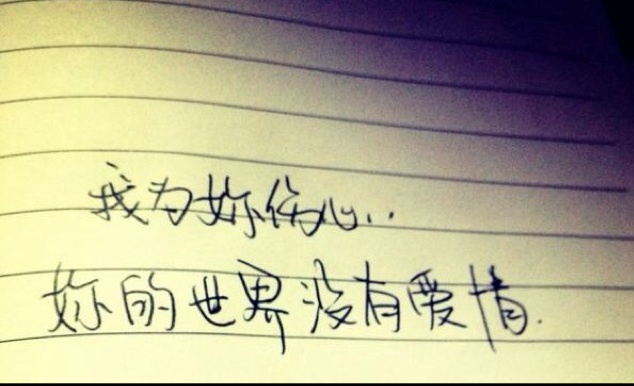 我为妳伤心..
妳的世界没有爱情.